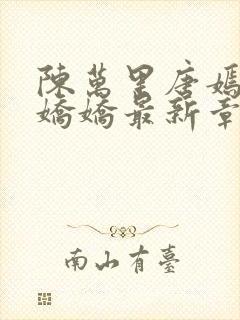 陳萬里唐嫣
嬌嬌最新章
南山有臺